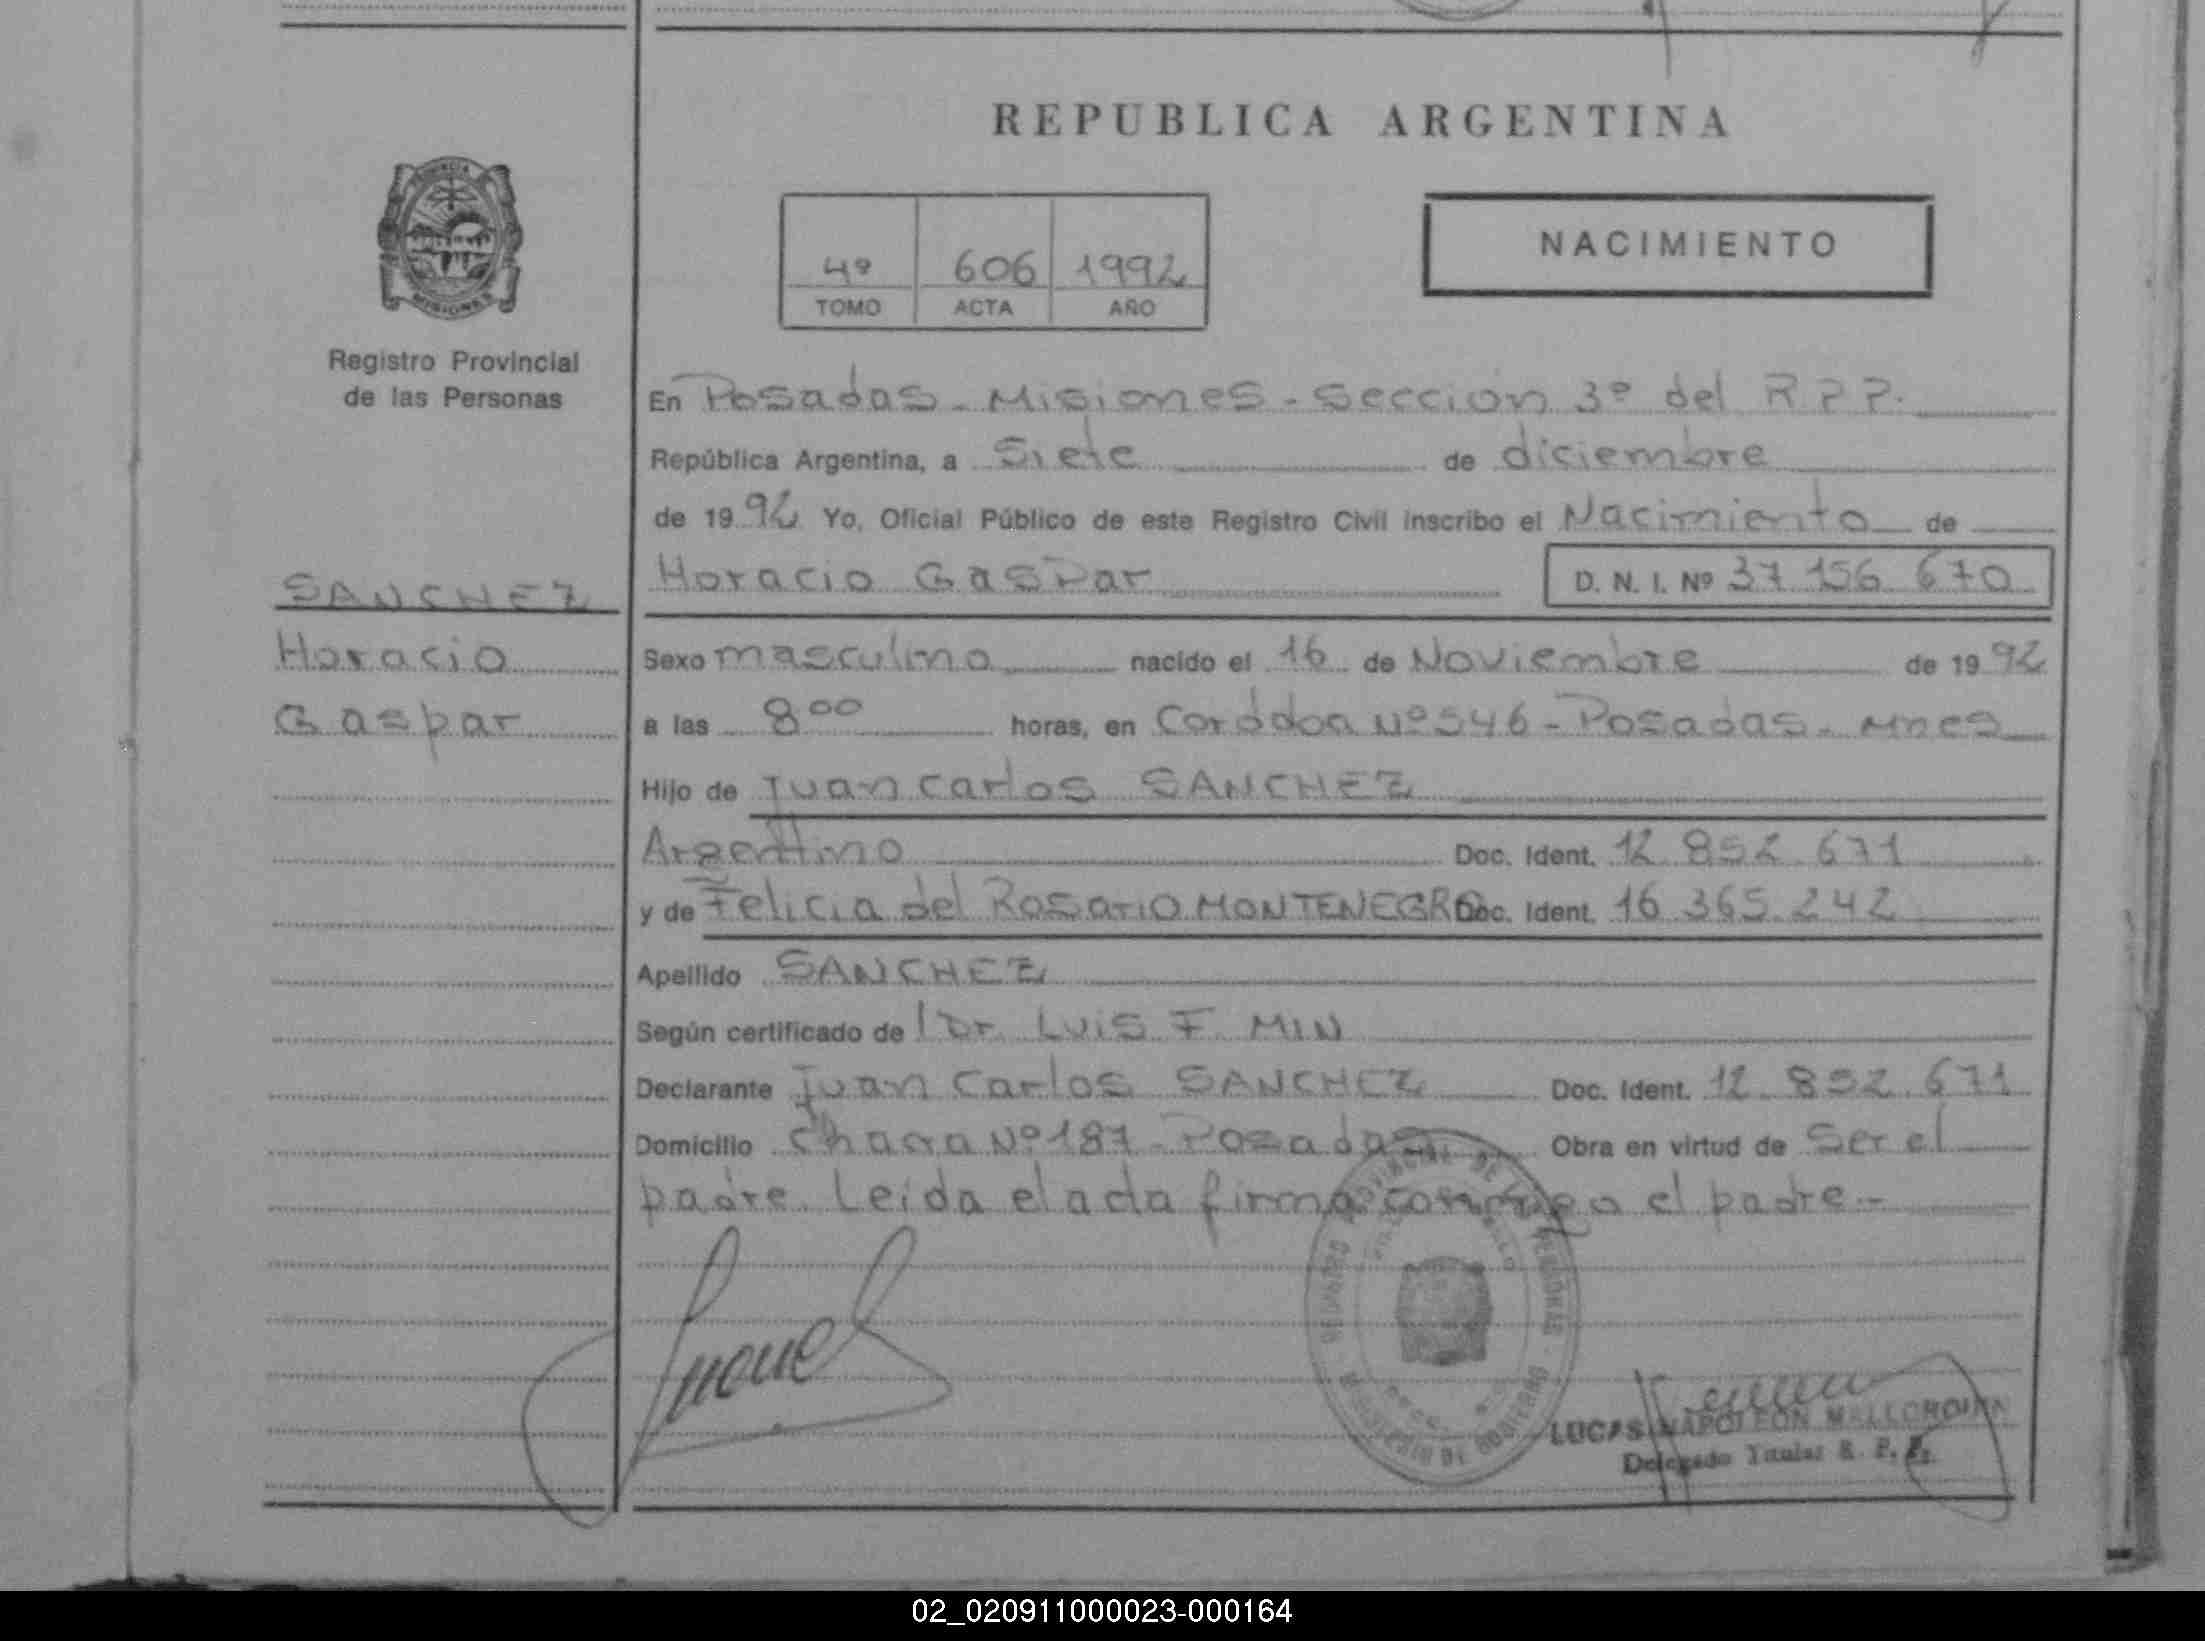 REPUBLICA ARGENTINA
PROVINCIA
MISIONES
Registro Provincial
de las Personas
4º 606 1992
TOMO ACTA AÑO
NACIMIENTO
En Posadas - Misiones - Sección 3º del R P P.
República Argentina, a Siete de diciembre
de 19 92 Yo, Oficial Público de este Registro Civil inscribo el Nacimiento de
Horacio Gaspar D. N. I. Nº 37 156 670
SANCHEZ
Horacio
Gaspar
Sexo masculino nacido el 16 de Noviembre de 19 92
a las 8 00 horas, en Cordoba Nº 546 - Posadas - Mnes
Hijo de Juan Carlos SANCHEZ
Argentino Doc. Ident. 12 852 671
y de Felicia del Rosario MONTENEGRO Doc. Ident. 16 365 242
Apellido SANCHEZ
Según certificado de Dr. Luis F. MIN
Declarante Juan Carlos SANCHEZ Doc. Ident. 12 852 671
Domicilio Chacra Nº 187 - Posadas Obra en virtud de Ser el
padre. Leida el acta firma conmigo el padre.-
REGISTRO PROVINCIAL DE LAS PERSONAS
MINISTERIO DE GOBIERNO
LUCAS NAPOLEON
Delegado Titular R. P. P.
02_020911000023-000164